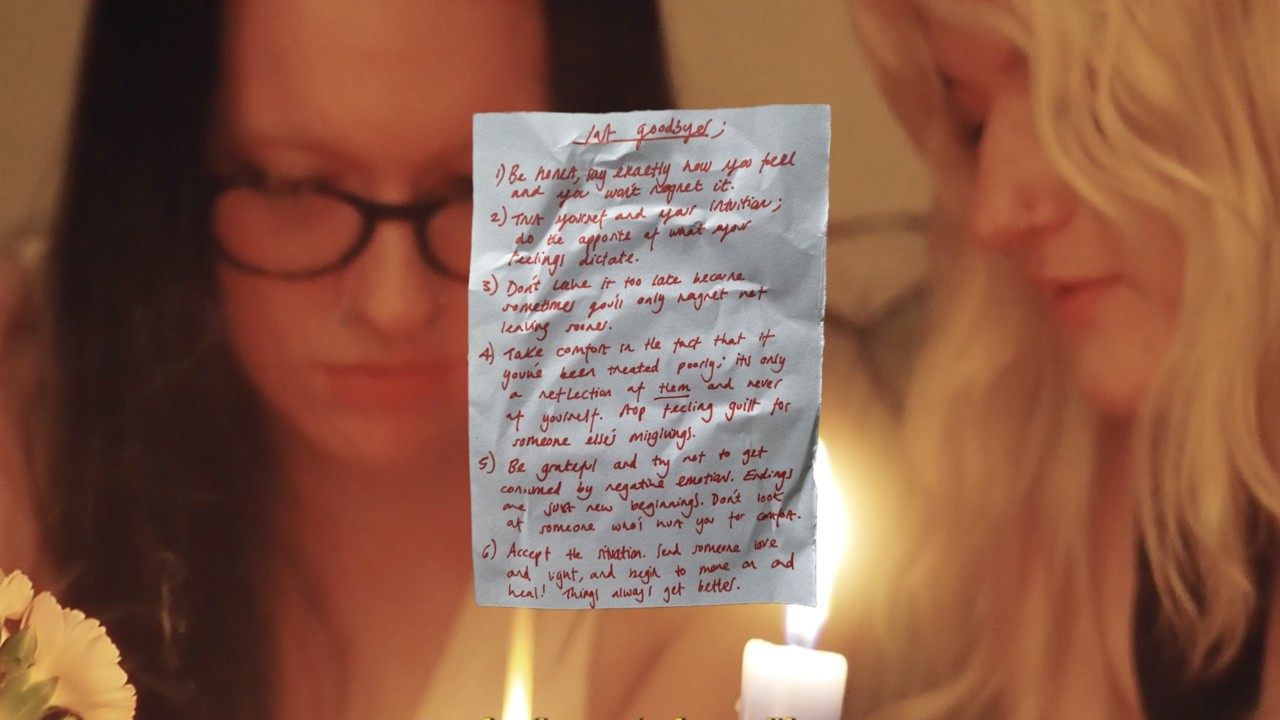 last goodbyes;
1) Be honest, say exactly how you feel
and you won't regret it.
2) Trust yourself and your intuition;
do the opposite of what your
feelings dictate.
3) Don't leave it too late because
sometimes you'll only regret not
leaving sooner.
4) Take comfort in the fact that if
you've been treated poorly; its only
a reflection of them and never
of yourself. Stop feeling guilt for
someone else's misgivings.
5) Be grateful and try not to get
consumed by negative emotion. Endings
are just new beginnings. Don't look
at someone who's hurt you for comfort.
6) Accept the situation. Send someone love
and light, and begin to move on and
heal! Things always get better.